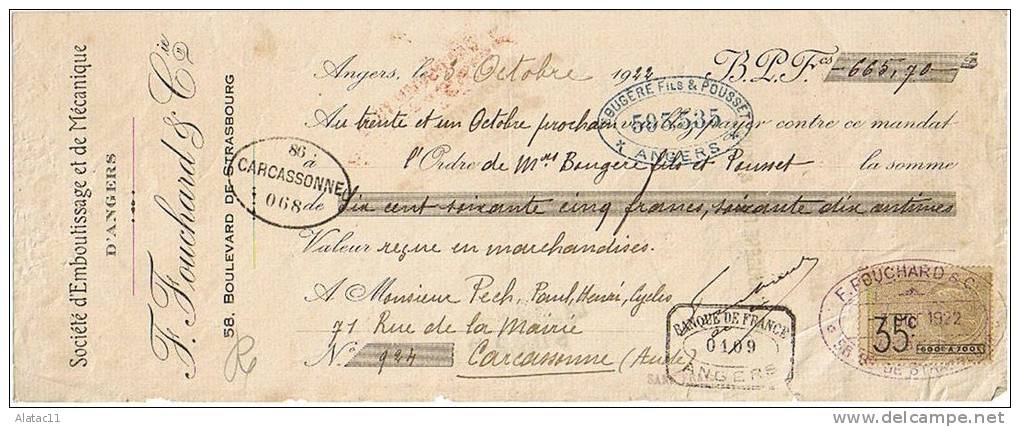 Société d'Emboutissage et de Mécanique
D'ANGERS
F. Fouchard & Cie
58. BOULEVARD DE STRASBOURG
Angers, le Octobre 1922 B.P.Fcs 665,70
BOUGÈRE FILS & POUSSET
593535
ANGERS
Au trente et un Octobre prochain payer contre ce mandat
l'Ordre de Mrs Bougère fils et Pousset la somme
de Six cent soixante cinq francs, soixante dix centimes
86
à
CARCASSONNE
068
Valeur reçue en marchandises.
A Monsieur Pech, Paul, Henri, Cycles
71 Rue de la Mairie
No 924 Carcassonne (Aude)
BANQUE DE FRANCE
0109
ANGERS
F. FOUCHARD & C
1922
35c
600F A 700F
DE STRA
Alatac11
delcampe.net